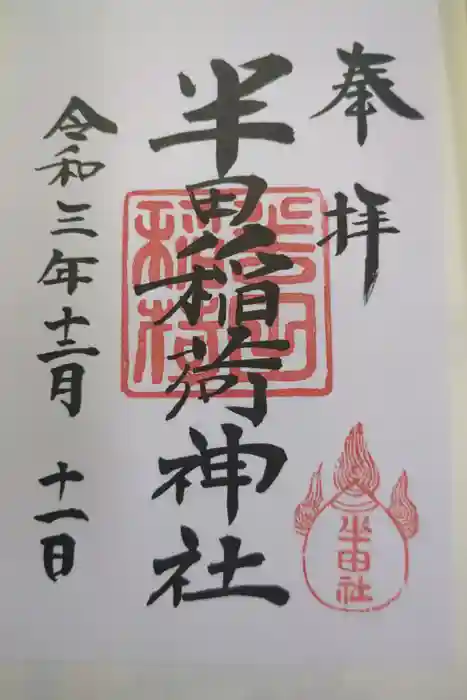 奉拝
半田稲荷神社
令和三年十二月十一日
半田社